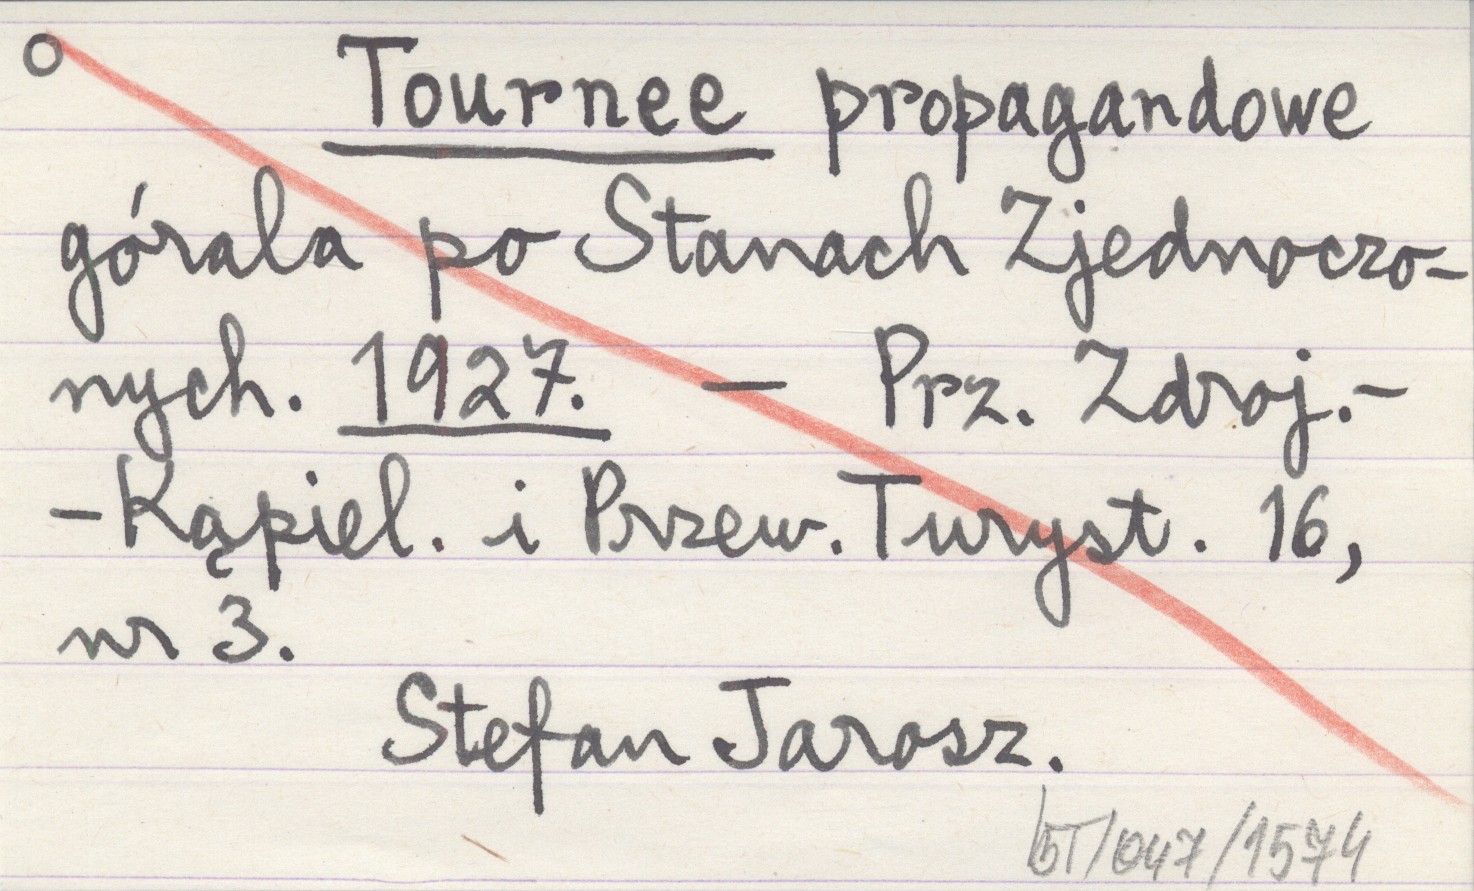 O Tournee propagandowe
górala po Stanach Zjednoczo-
nych. 1927. — Prz. Zdroj.-
-Kąpiel. i Przew. Turyst. 16,
nr 3.
Stefan Jarosz.
/1574